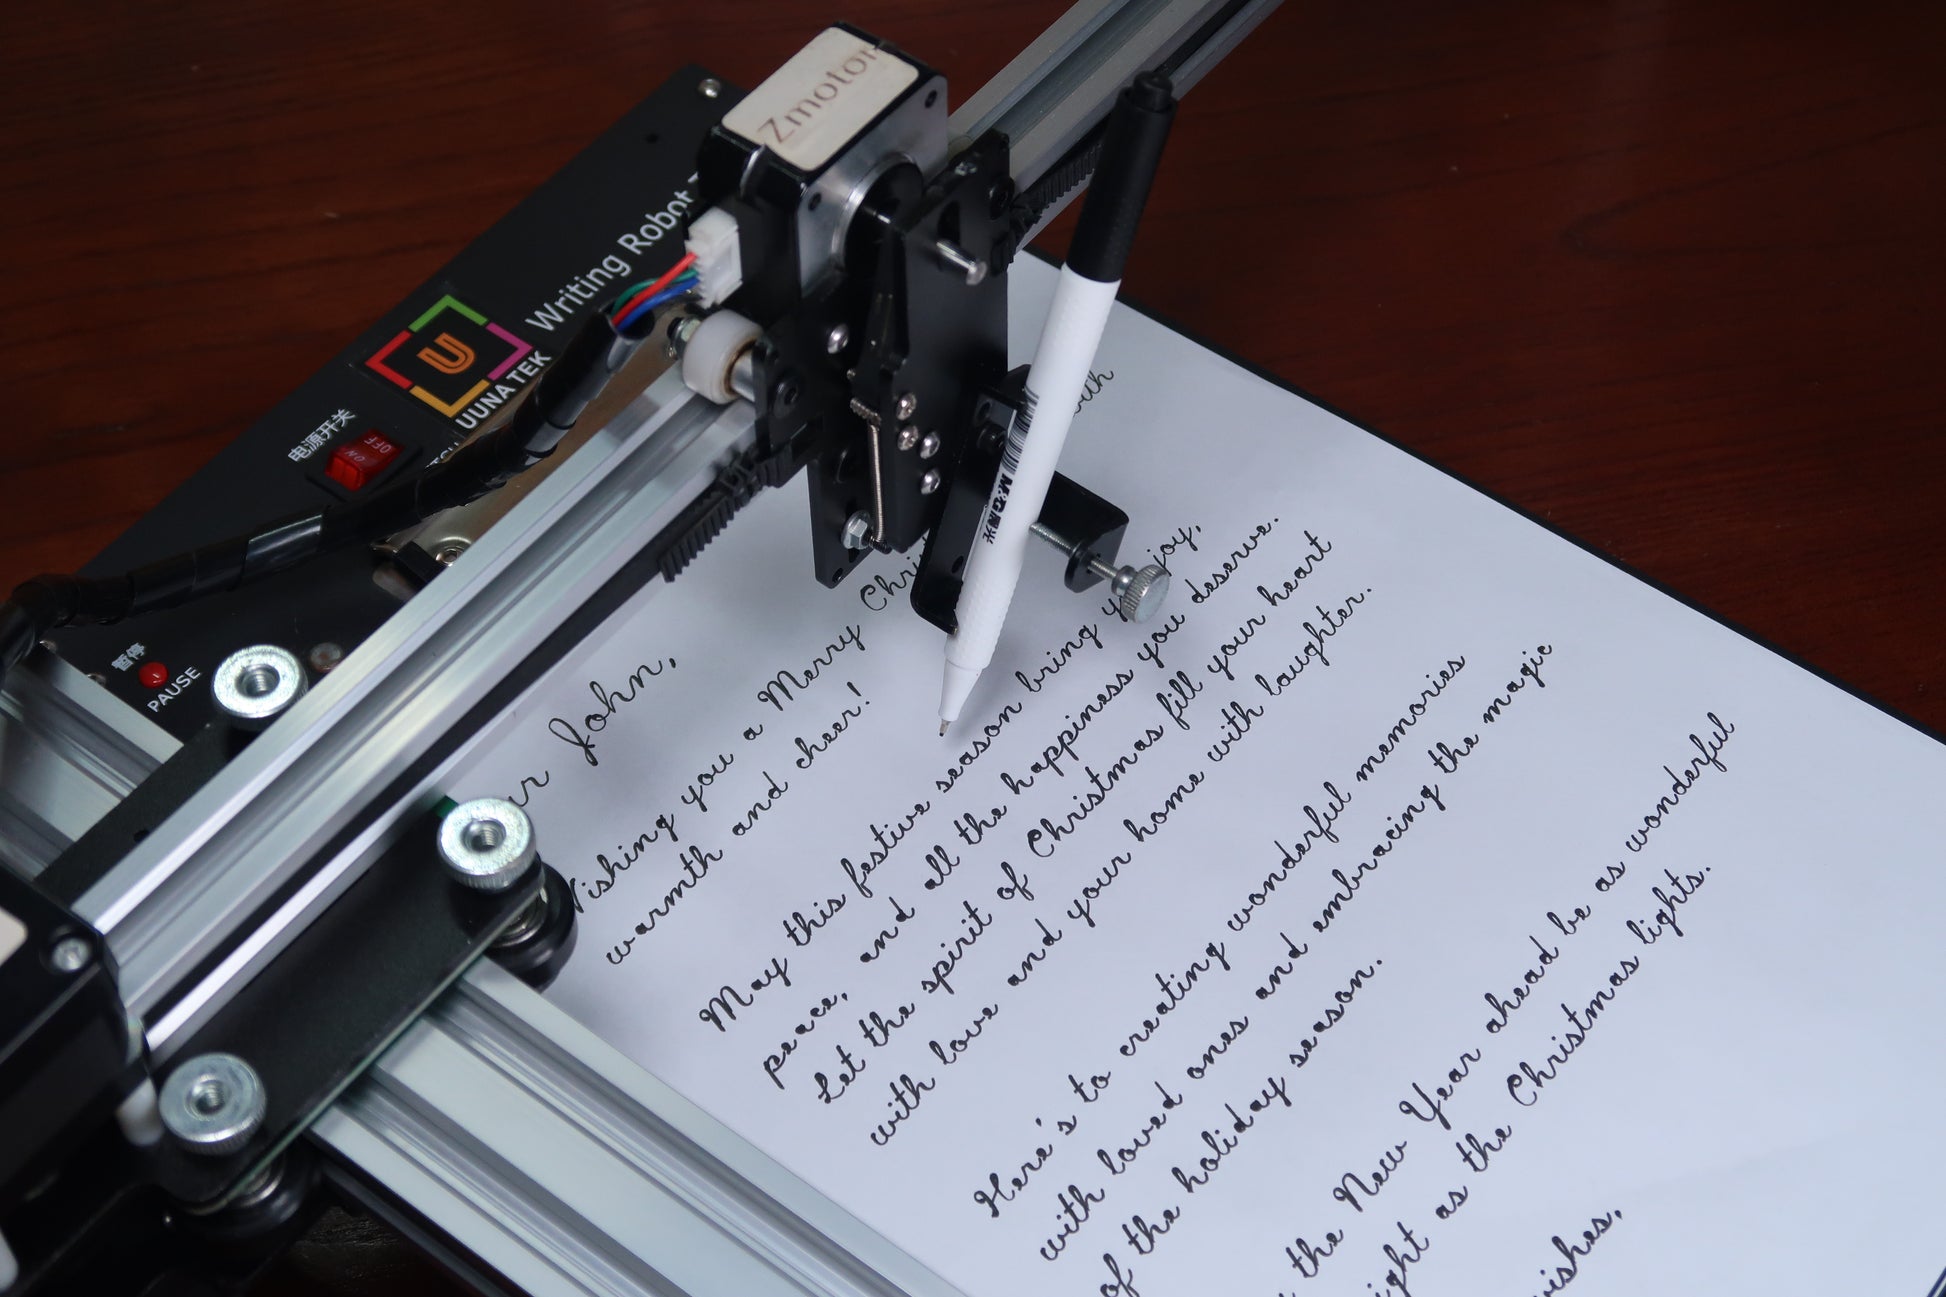 Zmotor
Writing Robot
UUNA TEK
电源开关
ON
OFF
暂停
PAUSE
M&G晨光
John,
Wishing you a Merry with
warmth and cheer!
May this festive season bring you joy,
peace, and all the happiness you deserve.
Let the spirit of Christmas fill your heart
with love and your home with laughter.
Here's to creating wonderful memories
with loved ones and embracing the magic
of the holiday season.
the New Year ahead be as wonderful
as the Christmas lights.
wishes,